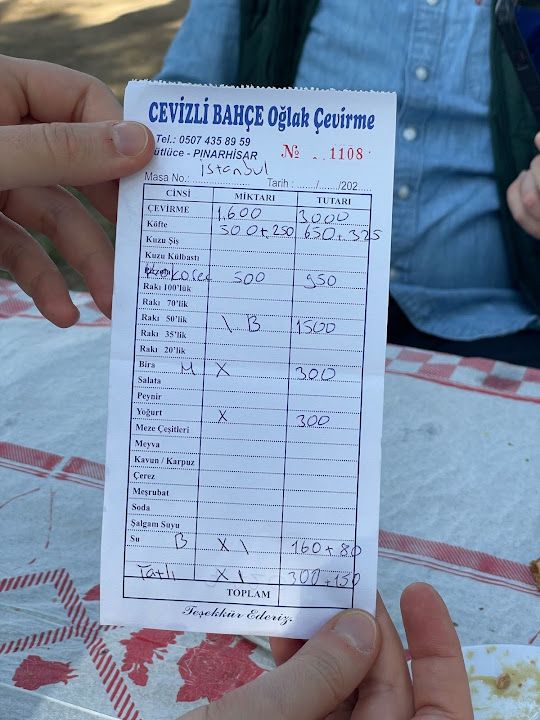 CEVİZLİ BAHÇE Oğlak Çevirme
Tel.: 0507 435 89 59
ütlüce - PINARHİSAR № 1108
istanbul
Masa No.: Tarih : ....../....../202....
CİNSİ MİKTARI TUTARI
ÇEVİRME 1.600 3000
Köfte 500+250 650+325
Kuzu Şiş
Kuzu Külbastı
Kokoreç 500 950
Rakı 100'lük
Rakı 70'lik
Rakı 50'lik 1 B 1500
Rakı 35'lik
Rakı 20'lik
Bira M X 300
Salata
Peynir
Yoğurt X 300
Meze Çeşitleri
Meyva
Kavun / Karpuz
Çerez
Meşrubat
Soda
Şalgam Suyu
Su B X \ 160+80
Tatlı X \ 300+150
TOPLAM
Teşekkür Ederiz.